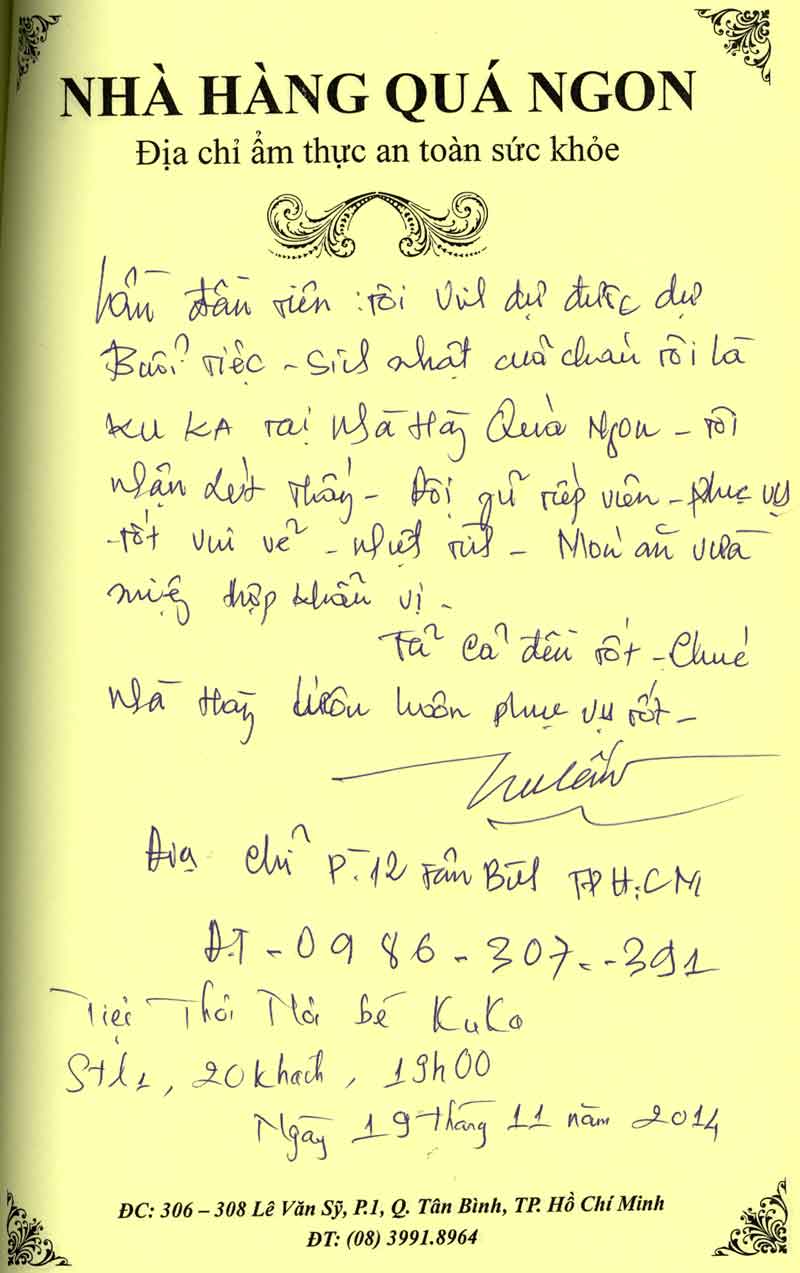 NHÀ HÀNG QUÁ NGON
Địa chỉ ẩm thực an toàn sức khỏe
Lần đầu tiên tôi dự được dự
Buổi tiệc - Sinh nhật của cháu tôi là
KU KA tại Nhà Hàng Quá Ngon - tôi
nhận thấy - Đội tiếp viên - phục vụ
tốt vui vẻ - nhiệt tình - Món ăn vừa
miệng hợp khẩu vị -
Tất cả đều tốt - Chúc
Nhà Hàng luôn luôn phục vụ tốt -
Địa chỉ P.12 Tân Bình TP H.C M
ĐT - 0986 - 307 - 391
Tiệc Thôi Nôi bé KuKo
20 khách, 19h00
Ngày 19 tháng 11 năm 2014
ĐC: 306 – 308 Lê Văn Sỹ, P.1, Q. Tân Bình, TP. Hồ Chí Minh
ĐT: (08) 3991.8964